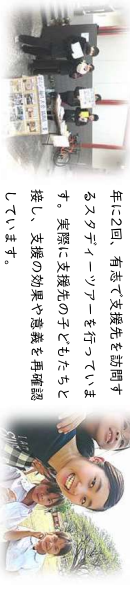 年に2回、有志で支援先を訪問す
るスタディーツアーを行っていま
す。実際に支援先の子どもたちと
接し、支援の効果や意義を再確認
しています。